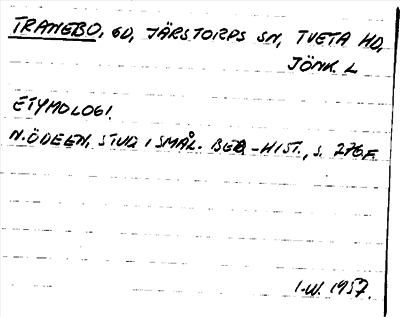 TRANEBO, GD, JÄRSTORPS SN, TVETA HD,
JÖNK. L
ETYMOLOGI.
N. ÖDEEN, STUD I SMÅL. BEB.-HIST., S. 276F.
I.W. 1957.